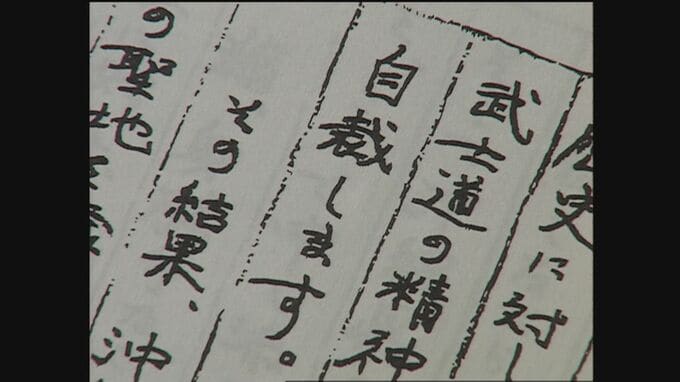 歴史に対し
武士道の精神
自裁します。
その結果、沖
の聖地